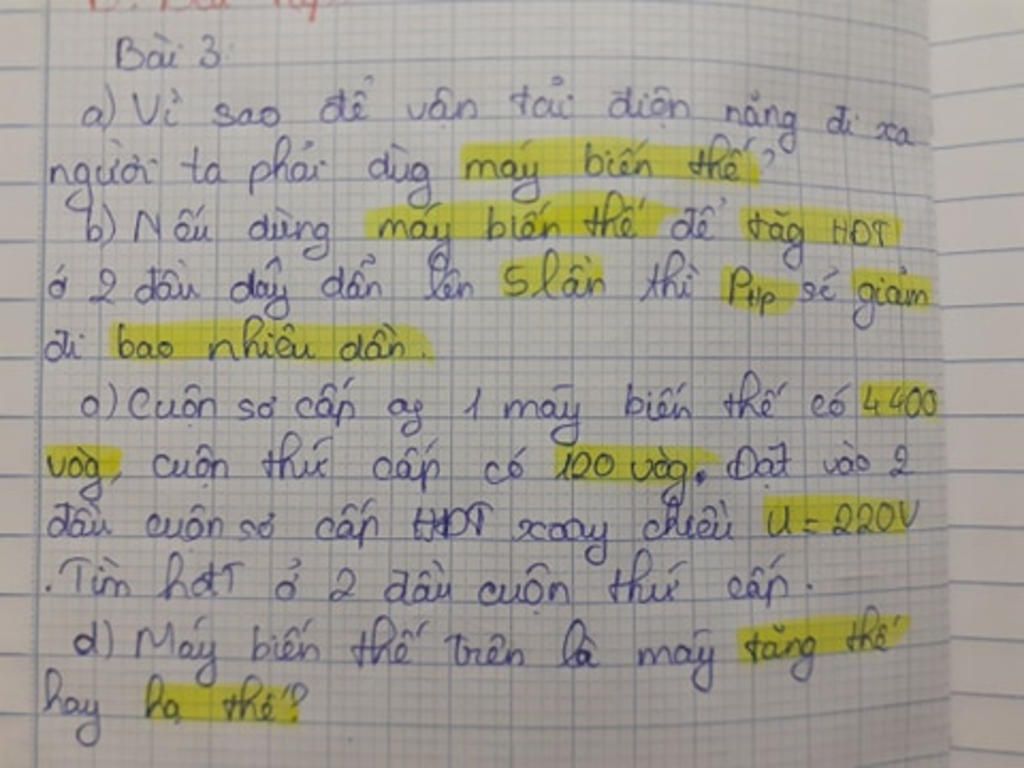 Bài 3:
a) Vì sao để vận tải điện năng đi xa
người ta phải dùg máy biến thế?
b) Nếu dùng máy biến thế để tăg HĐT
ở 2 đầu dây dẫn lên 5 lần thì Php sẽ giảm
đi bao nhiêu dần.
c) Cuộn sơ cấp of 1 máy biến thế có 4400
vòg, cuộn thứ cấp có 100 vòg. Đặt vào 2
đầu cuộn sơ cấp HĐT xoay chiều U = 220V
. Tìm hđT ở 2 đầu cuộn thứ cấp.
d) Máy biến thế trên là máy tăng thế
hay hạ thế?